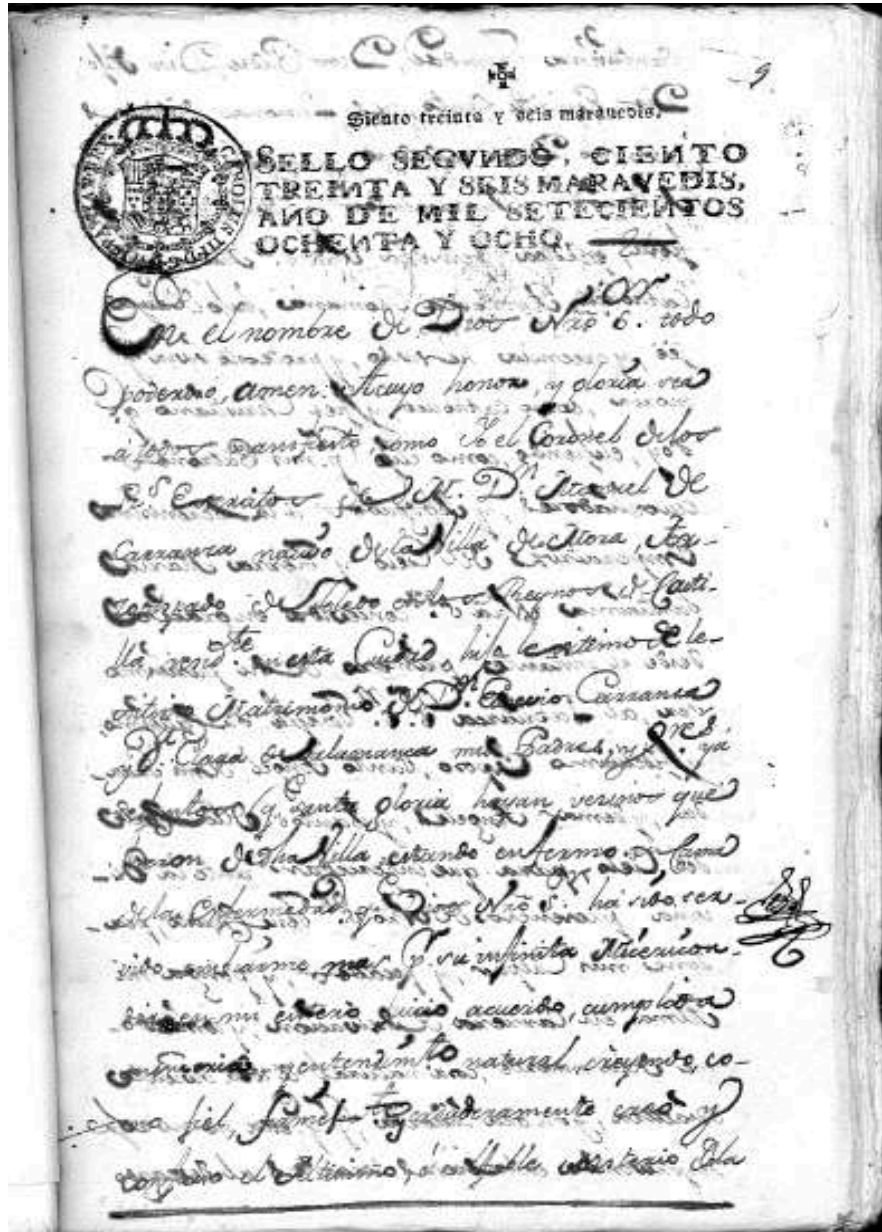 9
Siento treinta y seis maravedis.
SELLO SEGVNDO, CIENTO
TREINTA Y SEIS MARAVEDIS,
AÑO DE MIL SETECIENTOS
OCHENTA Y OCHO.
En el nombre de Dios Nrõ S.or todo
poderoso, amen. A cuyo honor, y gloria sea
á todos manifiesto, como Yo el Coronel de los
R.s Exercitos de S. M. D.n Manuel de
Carranza nativo de la Villa de Mora, Ar-
zobispado de Toledo en los Reynos de Casti-
lla, resid.te en esta Ciudad hijo lexitimo de le-
xitimo Matrimonio de D.n Carranza
y D.a de Salamanca mis Padres, y S.res ya
defuntos (q.e Santa gloria hayan) vecinos que
fueron de dha Villa, estando enfermo en Cama
de la Enfermedad, q.e Dios Nrõ S. ha sido ser-
vido embiarme, mas p.r su infinita Misericor-
dia en mi entero juicio, acuerdo, cumplida
memoria, y entendim.to natural, creyendo, co-
mo fiel, y verdaderamente creo y
confieso el Altisimo é inefable Misterio de la